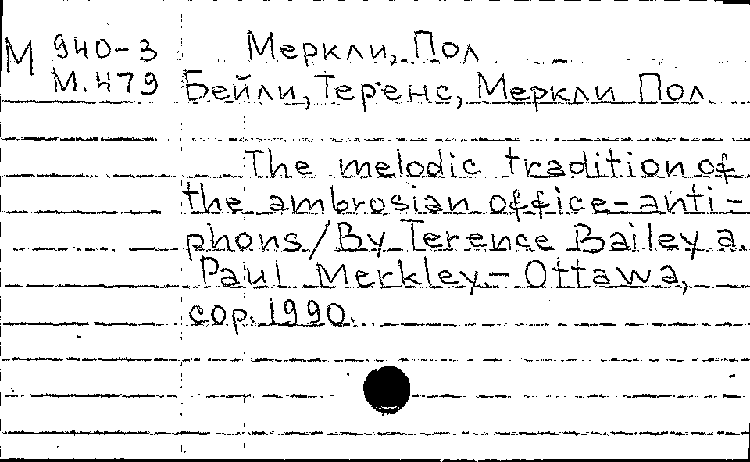 М 940-3 Меркли, Пол
М.479 Бейли, Теренс, Меркли Пол
The melodic tradition of
the ambrosian office-anti-
phons/By Terence Bailey a.
Paul Merkley.- Ottawa,
cop. 1990.